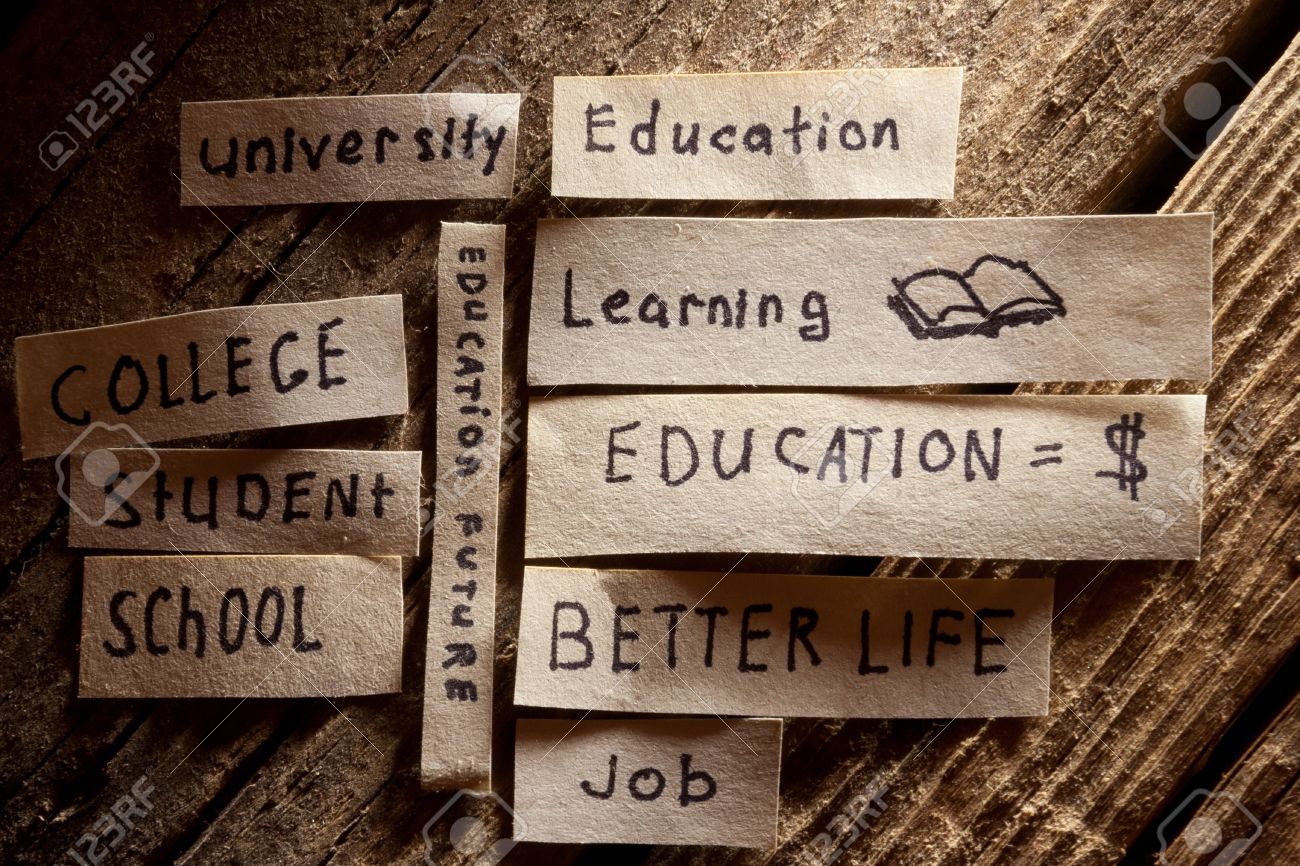 university
Education
EDUCATION FUTURE
Learning
COLLEGE
EDUCATION = $
StUDENt
SChOOL
BETTER LIFE
Job
123RF
123RF
123RF
123RF
123RF
123RF
123RF